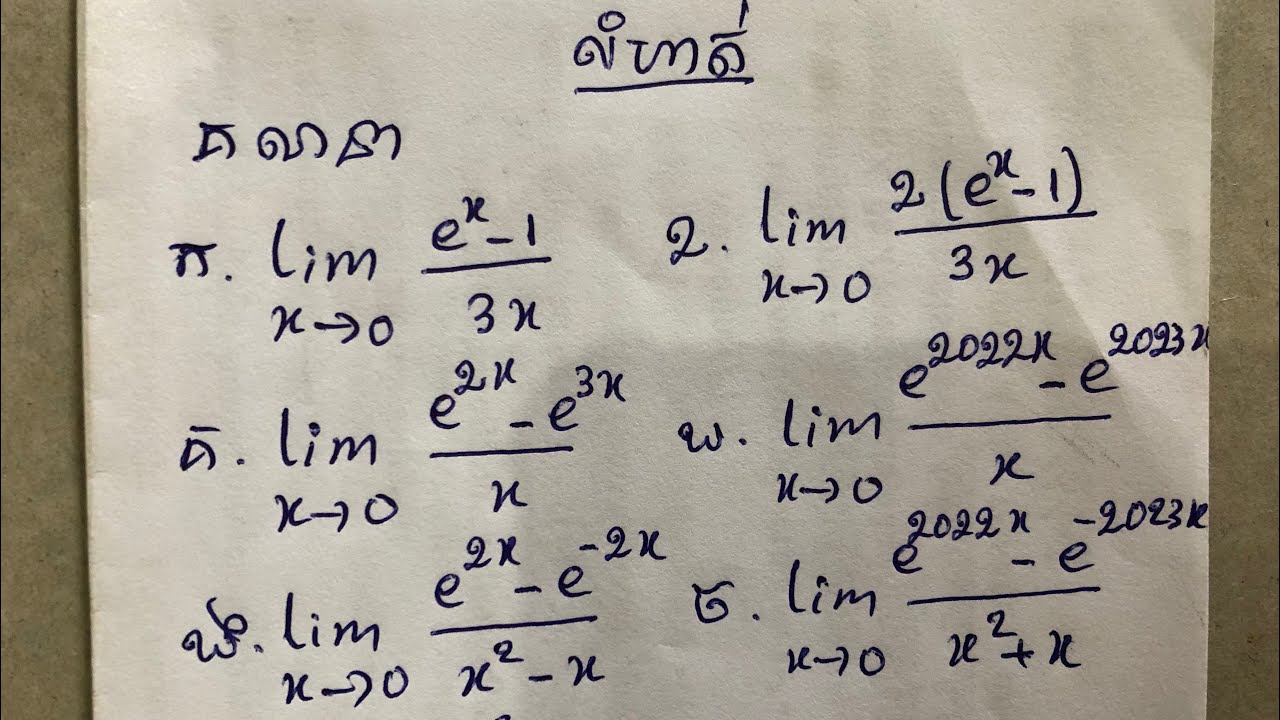 លំហាត់
គណនា
ក. lim x→0 (e^x - 1)/(3x) ខ. lim x→0 2(e^x - 1)/(3x)
គ. lim x→0 (e^{2x} - e^{3x})/x ឃ. lim x→0 (e^{2022x} - e^{2023x})/x
ង. lim x→0 (e^{2x} - e^{-2x})/(x^2 - x) ច. lim x→0 (e^{2022x} - e^{-2023x})/(x^2 + x)